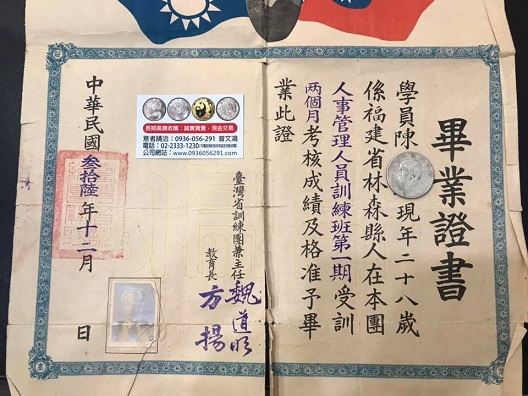 畢業證書
學員陳 現年二十八歲
係福建省林森縣人在本團
人事管理人員訓練班第一期受訓
兩個月考核成績及格准予畢
業此證
臺灣省訓練團兼主任 魏道明
教育長 方揚
中華民國叁拾陸年十二月 日
長期高價收購︱誠實買賣、現金交易
意者請洽:0936-056-291 曾文鴻
電話:02-2333-1230
公司網站:www.0936056291.com